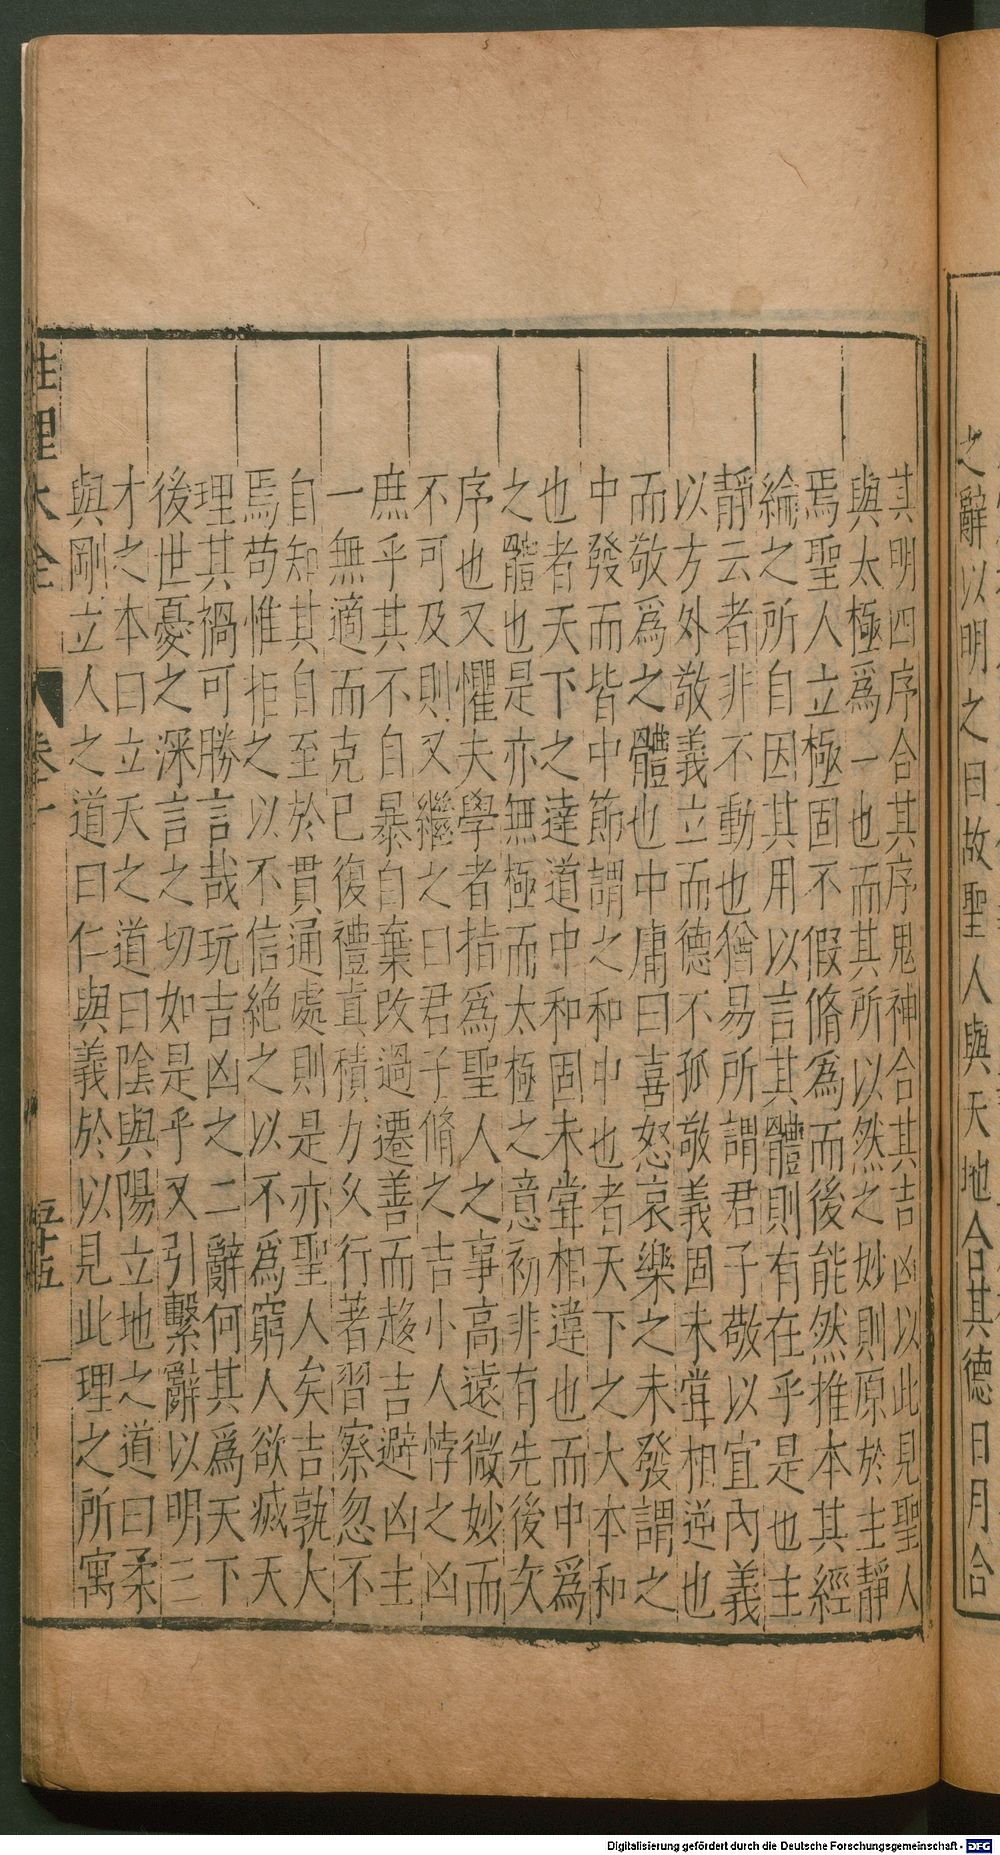 之辭以明之曰故聖人與天地合其德日月合
其明四序合其序鬼神合其吉凶以此見聖人
與太極爲一也而其所以然之妙則原於主靜
焉聖人立極固不假脩爲而後能然推本其經
綸之所自因其用以言其體則有在乎是也主
靜云者非不動也猶易所謂君子敬以直內義
以方外敬義立而德不孤敬義固未甞相逆也
而敬爲之體也中庸曰喜怒哀樂之未發謂之
中發而皆中節謂之和中也者天下之大本和
也者天下之達道中和固未甞相違也而中爲
之體也是亦無極而太極之意初非有先後次
序也又懼夫學者指爲聖人之事高遠微妙而
不可及則又繼之曰君子脩之吉小人悖之凶
庶乎其不自暴自棄改過遷善而趍吉避凶主
一無適而克己復禮眞積力久行著習察忽不
自知其自至於貫通處則是亦聖人矣吉孰大
焉苟惟拒之以不信絶之以不爲窮人欲滅天
理其禍可勝言哉玩吉凶之二辭何其爲天下
後世憂之深言之切如是乎又引繫辭以明三
才之本曰立天之道曰陰與陽立地之道曰柔
與剛立人之道曰仁與義於以見此理之所寓
性理大全 卷十
Digitalisierung gefördert durch die Deutsche Forschungsgemeinschaft - DFG